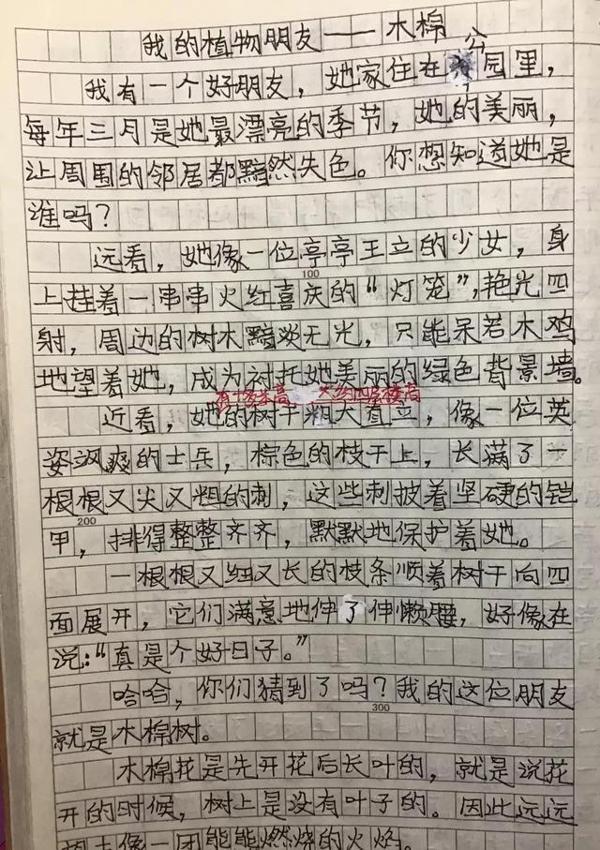 我的植物朋友——木棉
我有一个好朋友，她家住在公园里，
每年三月是她最漂亮的季节，她的美丽，
让周围的邻居都黯然失色。你想知道她是
谁吗？
远看，她像一位亭亭王立的少女，身
100
上挂着一串串火红喜庆的“灯笼”，艳光四
射，周边的树木黯淡无光，只能呆若木鸡
地望着她，成为衬托她美丽的绿色背景墙。
有十多米高 大约四层楼高
近看，她的树干粗大直立，像一位英
姿飒爽的士兵，棕色的枝干上，长满了一
根根又尖又粗的刺，这些刺披着坚硬的铠
200
甲，排得整整齐齐，默默地保护着她。
一根根又细又长的枝条顺着树干向四
面展开，它们满意地伸了伸懒腰，好像在
说：“真是个好日子。”
哈哈，你们猜到了吗？我的这位朋友
300
就是木棉树。
木棉花是先开花后长叶的，就是说花
开的时候，树上是没有叶子的。因此远远
像一团能能燃烧的火焰。